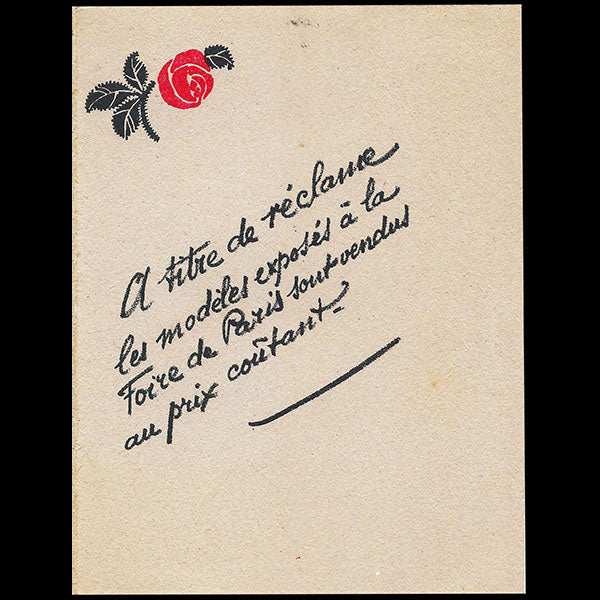 A titre de réclame
les modèles exposés à la
Foire de Paris sont vendus
au prix coûtant_